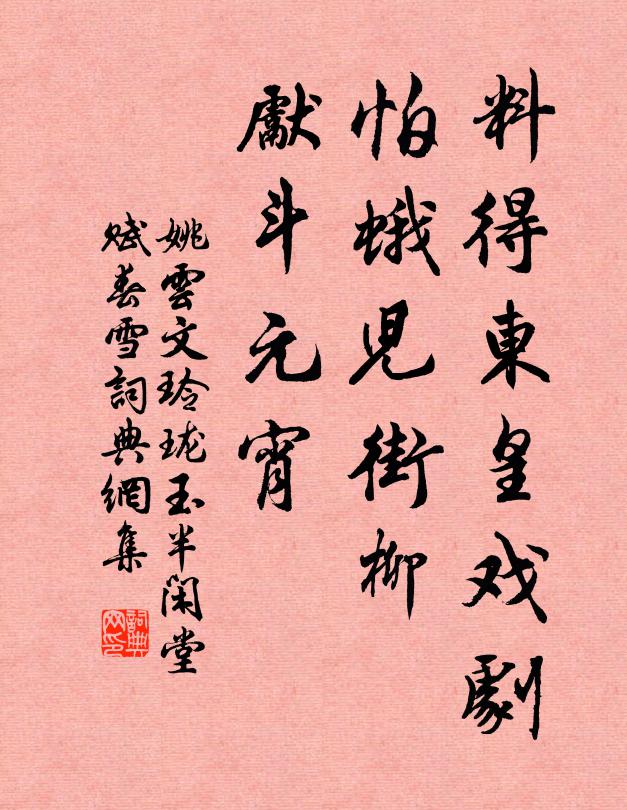 料得東皇戏劇
怕蛾児街柳
獻斗元宵
姚雲文玲珑玉半閑堂
赋春雪詞典網集
詞典网印